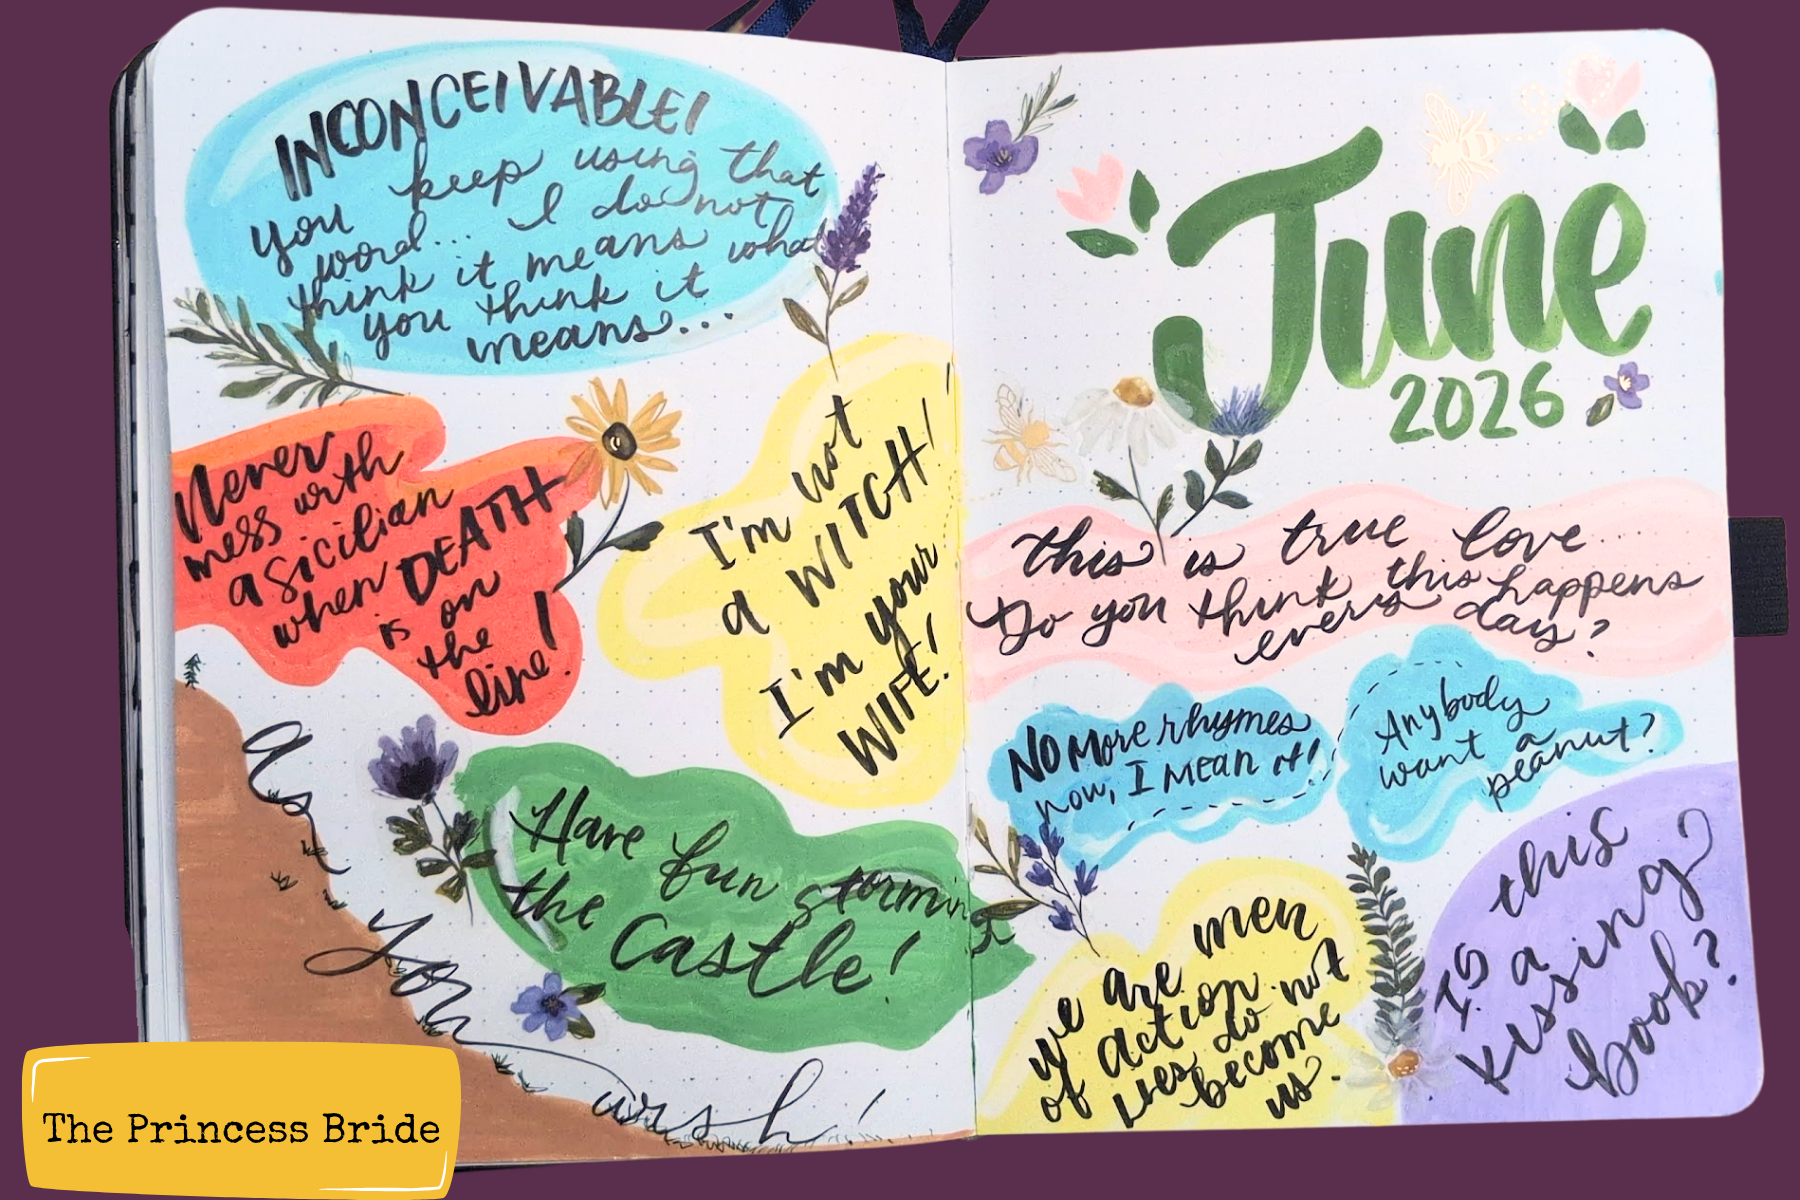 INCONCEIVABLE!
you keep using that
word... I do not
think it means what
you think it
means...
Never
mess with
a Sicilian
when DEATH
is on
the
line!
I'm not
a WITCH!
I'm your
WIFE!
as
you
wish!
Have fun storming
the Castle!
June
2026
this is true love....
Do you think this happens
every day?
NO More rhymes
now, I Mean it!
Anybody
want a
peanut?
we are men
of action. not
lies do
become
us.
Is this
a
kissing
book?
The Princess Bride